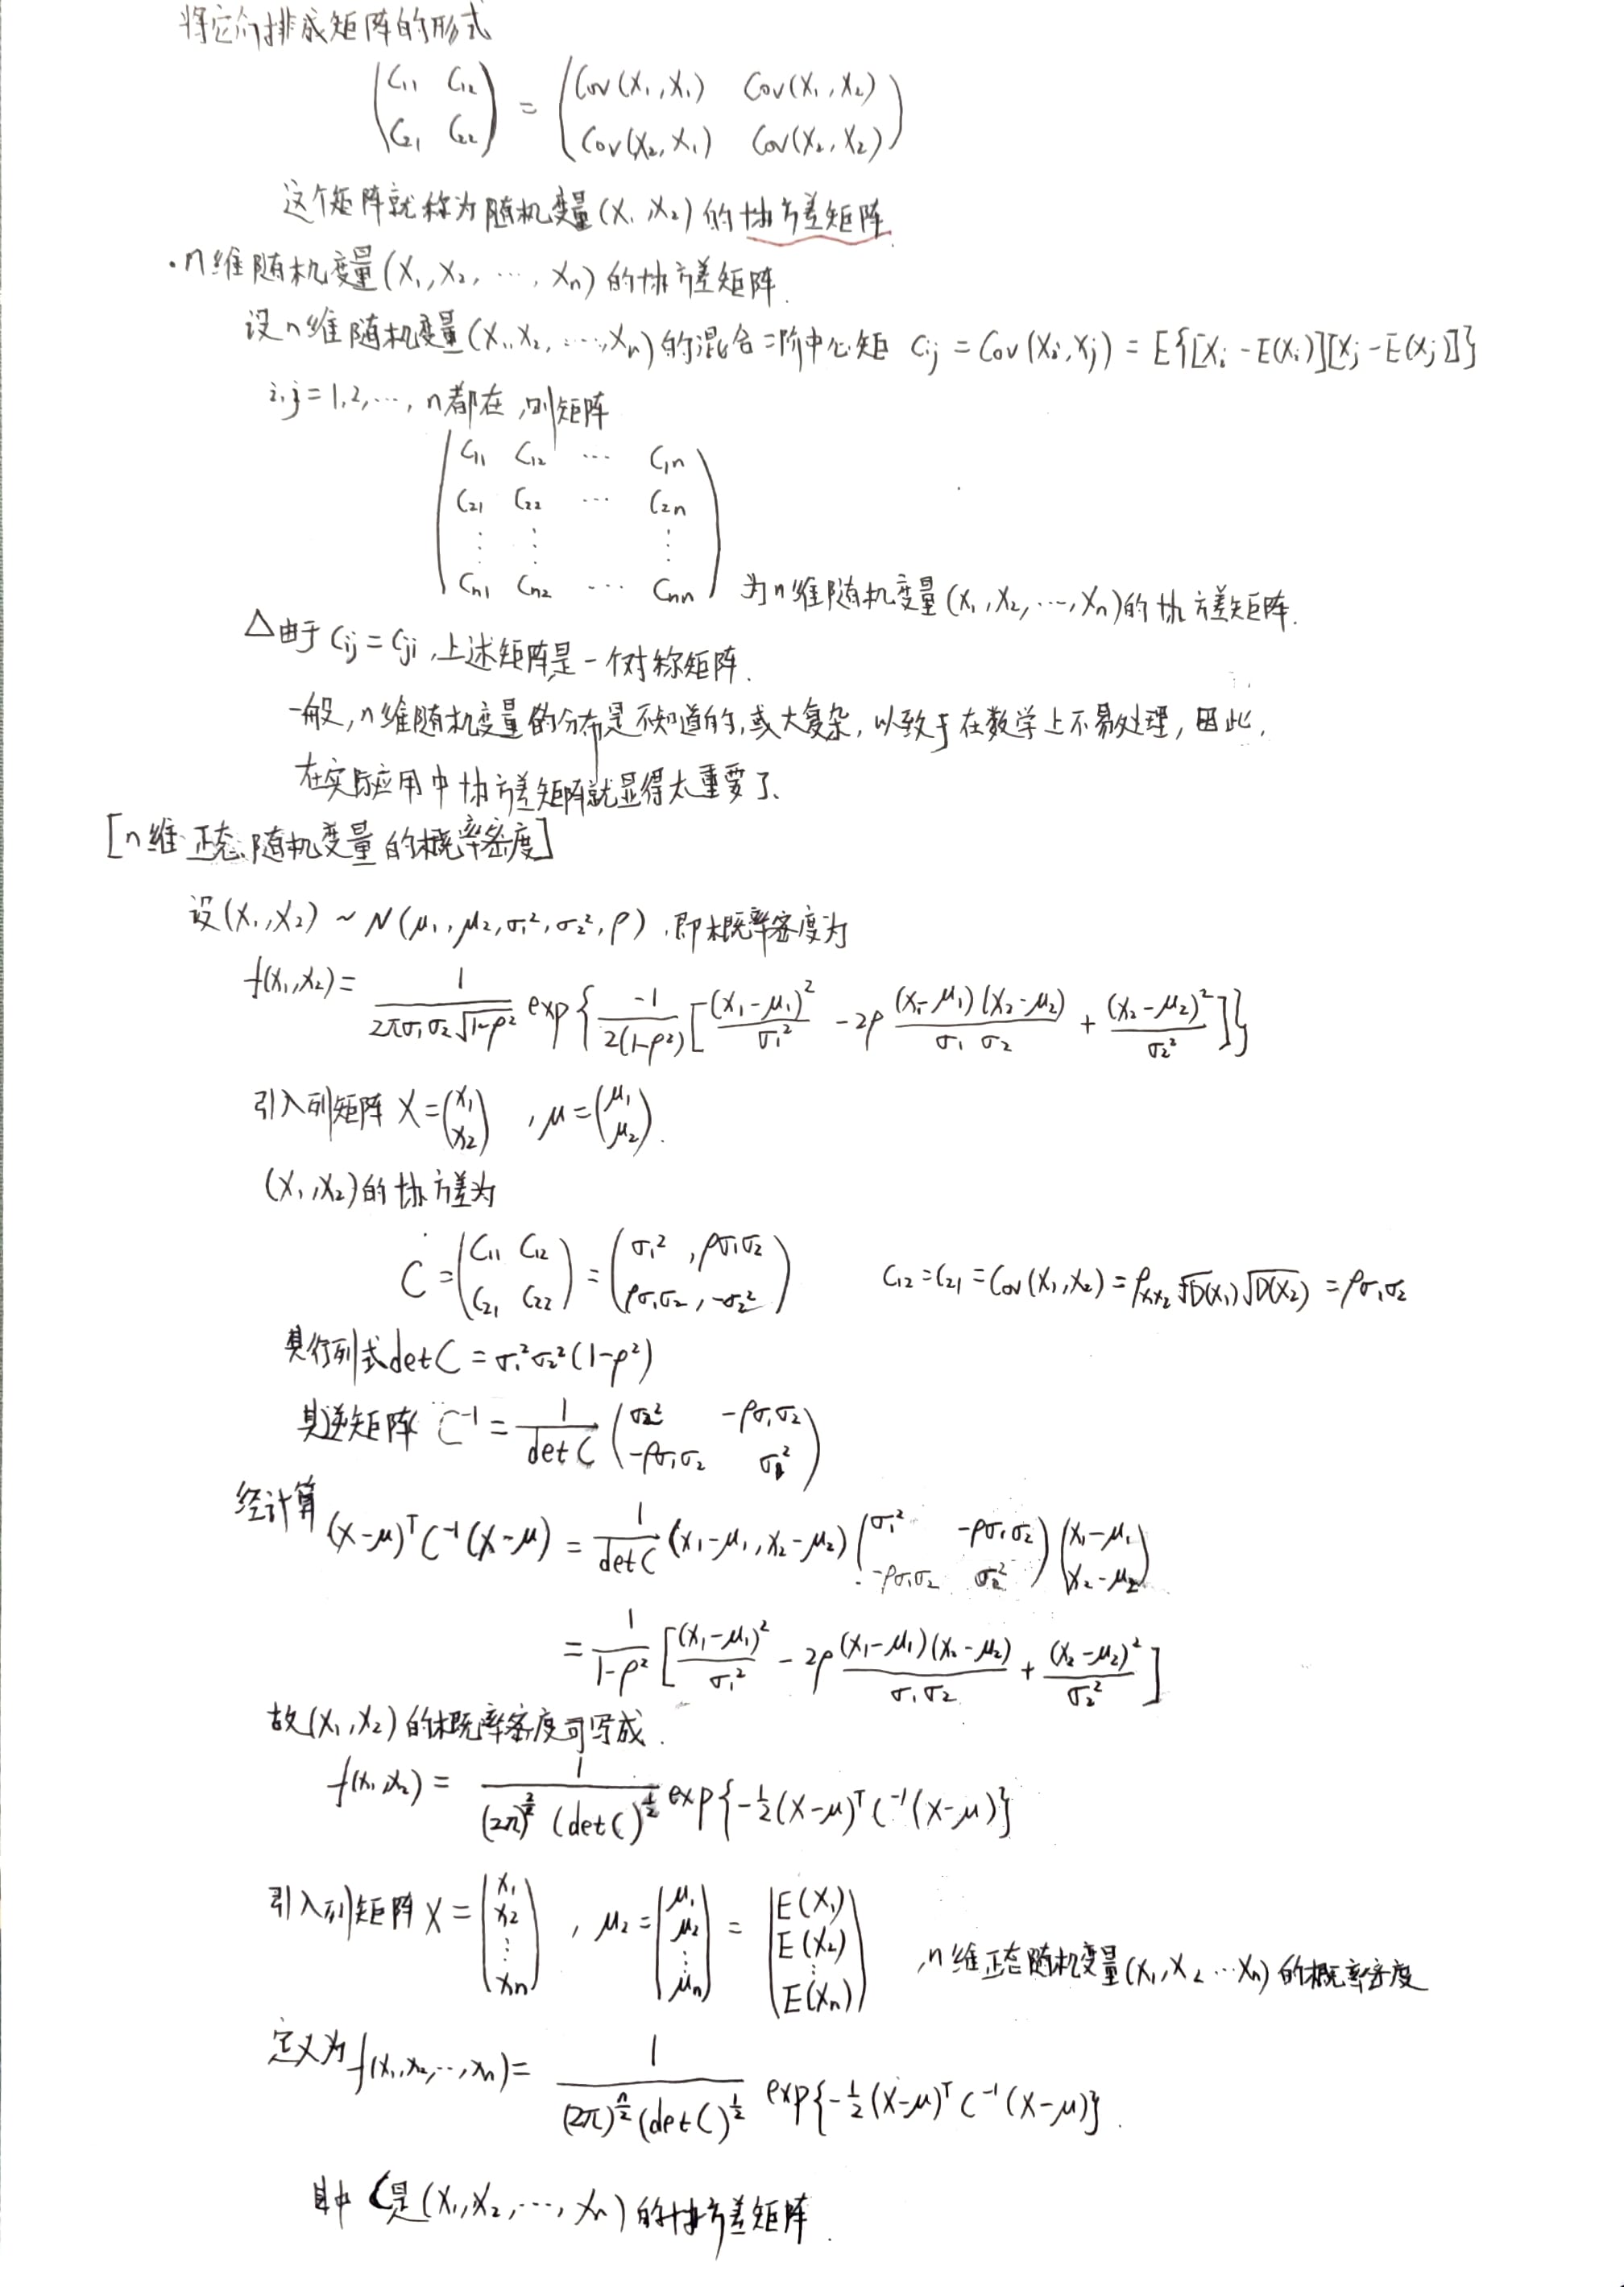 将它们排成矩阵的形式
(C₁₁ C₁₂ = (Cov(X₁,X₁) Cov(X₁,X₂)
C₂₁ C₂₂) Cov(X₂,X₁) Cov(X₂,X₂))
这个矩阵就称为随机变量(X₁,X₂)的协方差矩阵.
·n维随机变量(X₁,X₂,…,Xn)的协方差矩阵.
设n维随机变量(X₁,X₂,…,Xn)的混合二阶中心矩 Cij = Cov(Xi,Xj) = E{[Xi-E(Xi)][Xj-E(Xj)]}
i,j=1,2,…,n都在,则矩阵
(C₁₁ C₁₂ … C₁n
C₂₁ C₂₂ … C₂n
⋮ ⋮ ⋮
Cn₁ Cn₂ … Cnn) 为n维随机变量(X₁,X₂,…,Xn)的协方差矩阵.
△由于Cij=Cji,上述矩阵是一个对称矩阵.
一般,n维随机变量的分布是不知道的,或太复杂,以致于在数学上不易处理,因此,
在实际应用中协方差矩阵就显得太重要了、
[n维正态随机变量的概率密度]
设(X₁,X₂) ~ N(μ₁,μ₂,σ₁²,σ₂²,ρ),即概率密度为
f(x₁,x₂)= 1/(2πσ₁σ₂√(1-ρ²)) exp{ -1/(2(1-ρ²)) [ (x₁-μ₁)²/σ₁² -2ρ (x₁-μ₁)(x₂-μ₂)/(σ₁σ₂) + (x₂-μ₂)²/σ₂² ]}
引入列矩阵 X=(x₁ x₂) ,μ=(μ₁ μ₂).
(X₁,X₂)的协方差为
C = (C₁₁ C₁₂ = (σ₁² ,ρσ₁σ₂ C₁₂=C₂₁=Cov(X₁,X₂)=ρx₁x₂√D(X₁)√D(X₂) =ρσ₁σ₂
C₂₁ C₂₂) ρσ₁σ₂,-σ₂²)
其行列式detC = σ₁²σ₂²(1-ρ²)
其逆矩阵 C⁻¹ = 1/detC (σ₂² -ρσ₁σ₂
-ρσ₁σ₂ σ₁²)
经计算 (X-μ)ᵀC⁻¹(X-μ) = 1/detC (x₁-μ₁,x₂-μ₂) (σ₁² -ρσ₁σ₂) (x₁-μ₁
-ρσ₁σ₂ σ₂² x₂-μ₂)
= 1/(1-ρ²) [ (x₁-μ₁)²/σ₁² - 2ρ (x₁-μ₁)(x₂-μ₂)/(σ₁σ₂) + (x₂-μ₂)²/σ₂² ]
故(X₁,X₂)的概率密度可写成.
f(x₁,x₂) = 1/((2π)^(2/2) (detC)^(1/2)) exp{-½(X-μ)ᵀC⁻¹(X-μ)}
引入列矩阵 X = (x₁ x₂ ⋮ xn) , μ₂ = (μ₁ μ₂ ⋮ μn) = (E(X₁) E(X₂) ⋮ E(Xn)) ,n维正态随机变量(X₁,X₂…Xn)的概率密度
定义为 f(x₁,x₂,…,xn)= 1/((2π)^(n/2)(detC)^(1/2)) exp{-½(X-μ)ᵀC⁻¹(X-μ)}.
其中C是(X₁,X₂,…,Xn)的协方差矩阵.